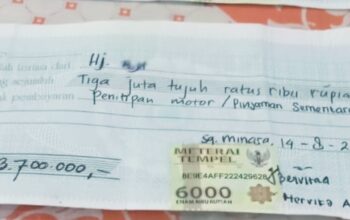 lah terima dari Hj.
ng sejumlah Tiga juta tujuh ratus ribu rupia
k pembayaran Penitipan motor / Pinjaman Sementar
sg. minasa, 14 - 8 - 2
3.700.000,-
METERAI
TEMPEL
BE9E4AFF222429628
6000
ENAM RIBU RUPIAH
Hervita A